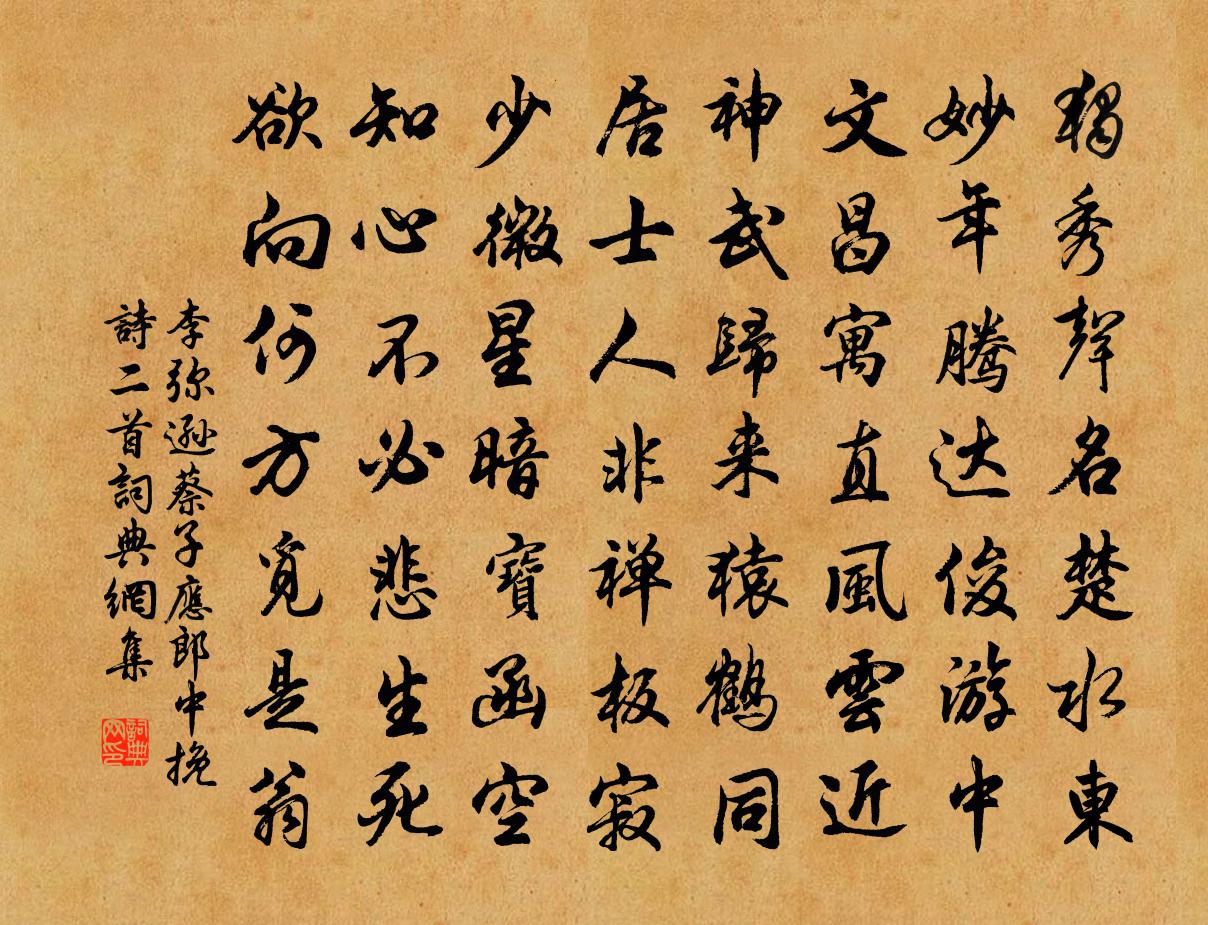 獨秀聲名楚水東
妙年騰达俊游中
文昌寓直風雲近
神武歸来猿鶴同
居士人非禅板寂
少微星暗寶函空
知心不必悲生死
欲向何方覓是翁
李弥遜蔡子應郎中挽
詩二首詞典網集
詞典网印